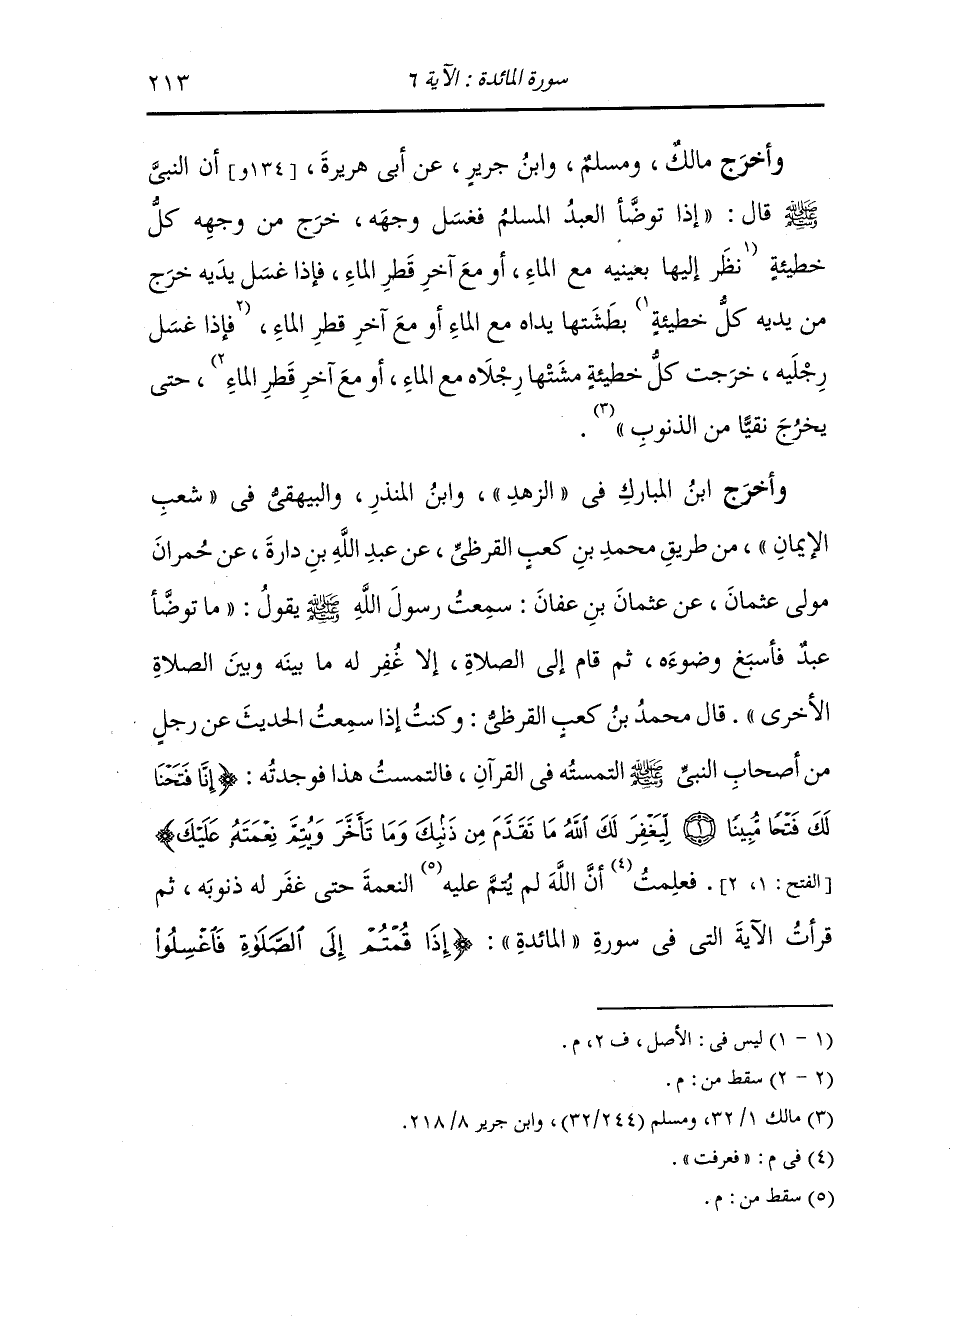 سورة المائدة : الآية ٦
٢١٣
وأخرَج مالكٌ ، ومسلمٌ ، وابنُ جريرٍ ، عن أبى هريرةَ ، [١٣٤و] أن النبىَّ
ﷺ قال : « إذا توضَّأ العبدُ المسلمُ فغسَل وجهَه ، خرَج من وجهِه كلُّ
خطيئةٍ (١ نظَر إليها بعينيه مع الماءِ ، أو معَ آخرِ قَطرِ الماءِ ، فإذا غسَل يدَيه خرَج
من يديه كلُّ خطيئةٍ ١) بطَشَتها يداه مع الماءِ أو معَ آخرِ قطرِ الماءِ ، (٢ فإذا غسَل
رِجْلَيه ، خرَجت كلُّ خطيئةٍ مشَتْها رِجْلَاه مع الماءِ ، أو معَ آخرِ قَطرِ الماءِ ٢) ، حتى
يخرُجَ نقيًّا من الذنوبِ » (٣) .
وأخرَج ابنُ المباركِ فى « الزهدِ » ، وابنُ المنذرِ ، والبيهقىُّ فى « شعبِ
الإيمانِ » ، من طريقِ محمدِ بنِ كعبٍ القرظىِّ ، عن عبدِ اللَّهِ بنِ دارةَ ، عن حُمرانَ
مولى عثمانَ ، عن عثمانَ بنِ عفانَ : سمِعتُ رسولَ اللَّهِ ﷺ يقولُ : « ما توضَّأ
عبدٌ فأسبَغ وضوءَه ، ثم قام إلى الصلاةِ ، إلا غُفِر له ما بينَه وبينَ الصلاةِ
الأخرى » . قال محمدُ بنُ كعبٍ القرظىُّ : وكنتُ إذا سمِعتُ الحديثَ عن رجلٍ
من أصحابِ النبىِّ ﷺ التمستُه فى القرآنِ ، فالتمستُ هذا فوجدتُه : ﴿ إِنَّا فَتَحْنَا
لَكَ فَتْحًا مُّبِينًا ۝١ لِّيَغْفِرَ لَكَ ٱللَّهُ مَا تَقَدَّمَ مِن ذَنۢبِكَ وَمَا تَأَخَّرَ وَيُتِمَّ نِعْمَتَهُۥ عَلَيْكَ ﴾
[الفتح : ١، ٢] . فعلِمتُ (٤) أنَّ اللَّهَ لم يُتمَّ عليه (٥) النعمةَ حتى غفَر له ذنوبَه ، ثم
قرأتُ الآيةَ التى فى سورةِ « المائدةِ » : ﴿ إِذَا قُمْتُمْ إِلَى ٱلصَّلَوٰةِ فَٱغْسِلُوا۟
(١ - ١) ليس فى : الأصل ، ف ٢، م .
(٢ - ٢) سقط من : م .
(٣) مالك ١/ ٣٢، ومسلم (٣٢/٢٤٤) ، وابن جرير ٨/ ٢١٨.
(٤) فى م : « فعرفت » .
(٥) سقط من : م .